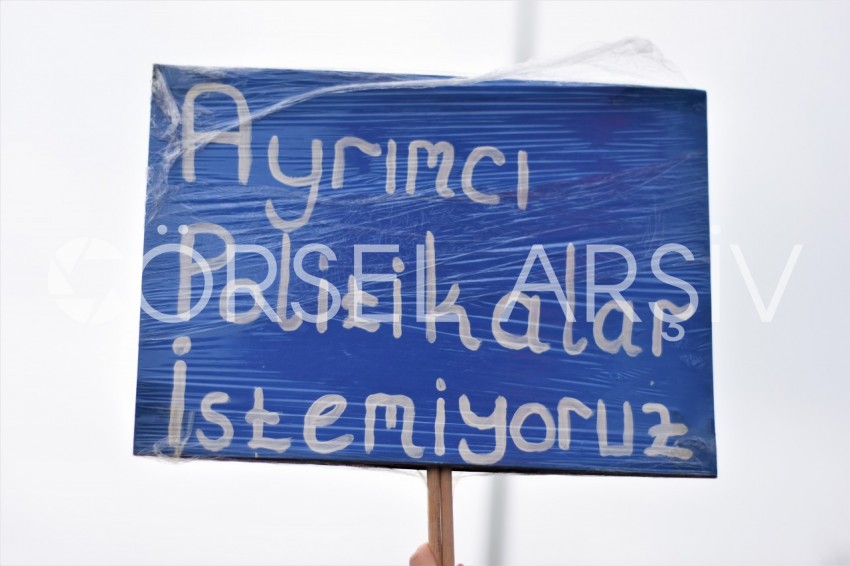 Ayrımcı
Politikalar
ÖRSEL ARŞİV
İstemiyoruz